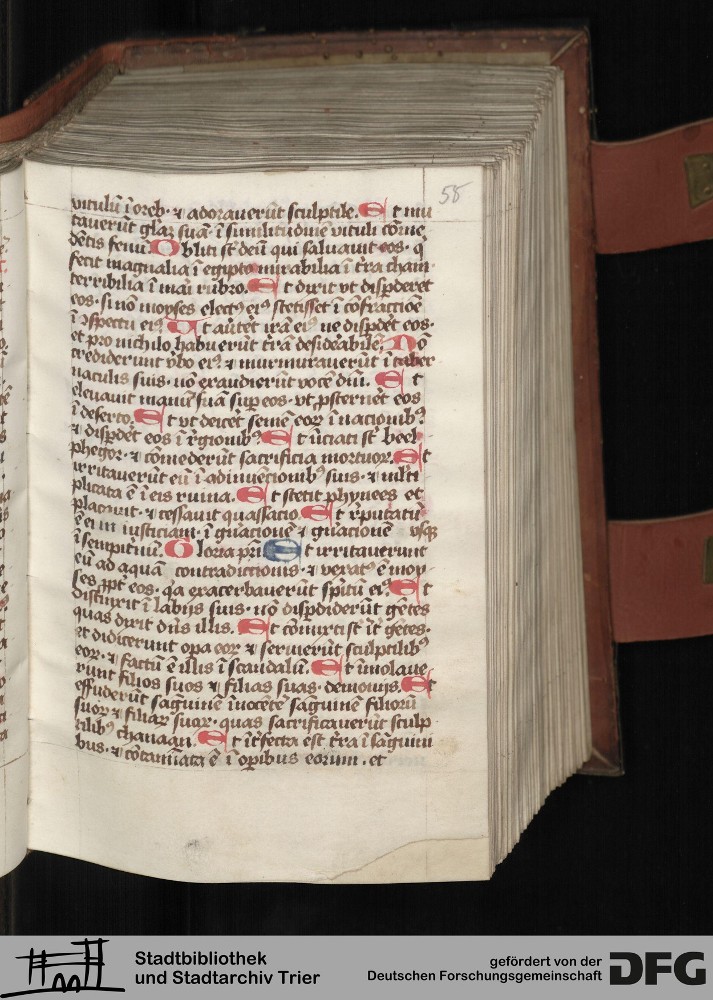 58
vitulū ī oreb · ⁊ adorauerūt sculptile. Et mu
tauerūt glāȝ suā · ī similitudinē vituli cōme
dētis fenū. Obliti sī deū qui saluauit eos · q̄
fecit magnalia ī egipto mirabilia ī t̄ra cham
terribilia ī mari rubro. Et dixit vt disp̄deret
eos · si nō moyses elect9 ei9 stetisset ī cōfractiōe
ī ꝯspectu ei9 Ut aūtēt irā ei9 ne disp̄det eos ·
et pro nichilo habuerūt t̄rā desiderabilē. Nō
crediderunt v̄bo ei9 · ⁊ murmurauerūt ī taber
naculis suis · nō exaudierūt vocē dn̄i. Et
eleuauit manū suā sup eos · vt ꝓsternēt eos
ī deserto. Et vt deicēt semē eoꝝ ī nacionib9
⁊ disp̄dēt eos ī r̄gionib9 Et īiciati sī beel
phegor · ⁊ cōmederūt sacrificia mortuoꝝ. Et
irritauerūt eū ī adinuēcionib9 suis · ⁊ m̄lti
plicata ē ī eis ruina. Et stetit phynees et
placauit · ⁊ cessauit quassacio. Et r̄putatū
ē ei in iusticiam · ī gn̄acionē ⁊ gn̄acionē vsqȝ
ī sempitnū. Gloria pr̄i Et irritauerunt
eū ad aquā contradictionis · ⁊ vexat9 ē moy
ses ꝓpt eos · qa exacerbauerūt sp̄itū ei9. Et
distinxit ī labijs suis · nō disp̄diderūt gētes
quas dixit dn̄s illis. Et cōmixti sī īt gētes ·
et didicerunt opa eoꝝ ⁊ seruierūt sculptilib9
eoꝝ · ⁊ factū ē illis ī scandalū. Et īmolaue
runt filios suos ⁊ filias suas · demonijs. Et
effuderūt saguinē īnocētē · saguinē filioru
suoꝝ ⁊ filiaꝝ suaꝝ · quas sacrificauerūt sculp
tilib9 chanaan. Et īt̄fecta est t̄ra ī saguini
bus · ⁊ cōtamīata ē ī opibus eorum . et
Stadtbibliothek
und Stadtarchiv Trier
gefördert von der
Deutschen Forschungsgemeinschaft DFG